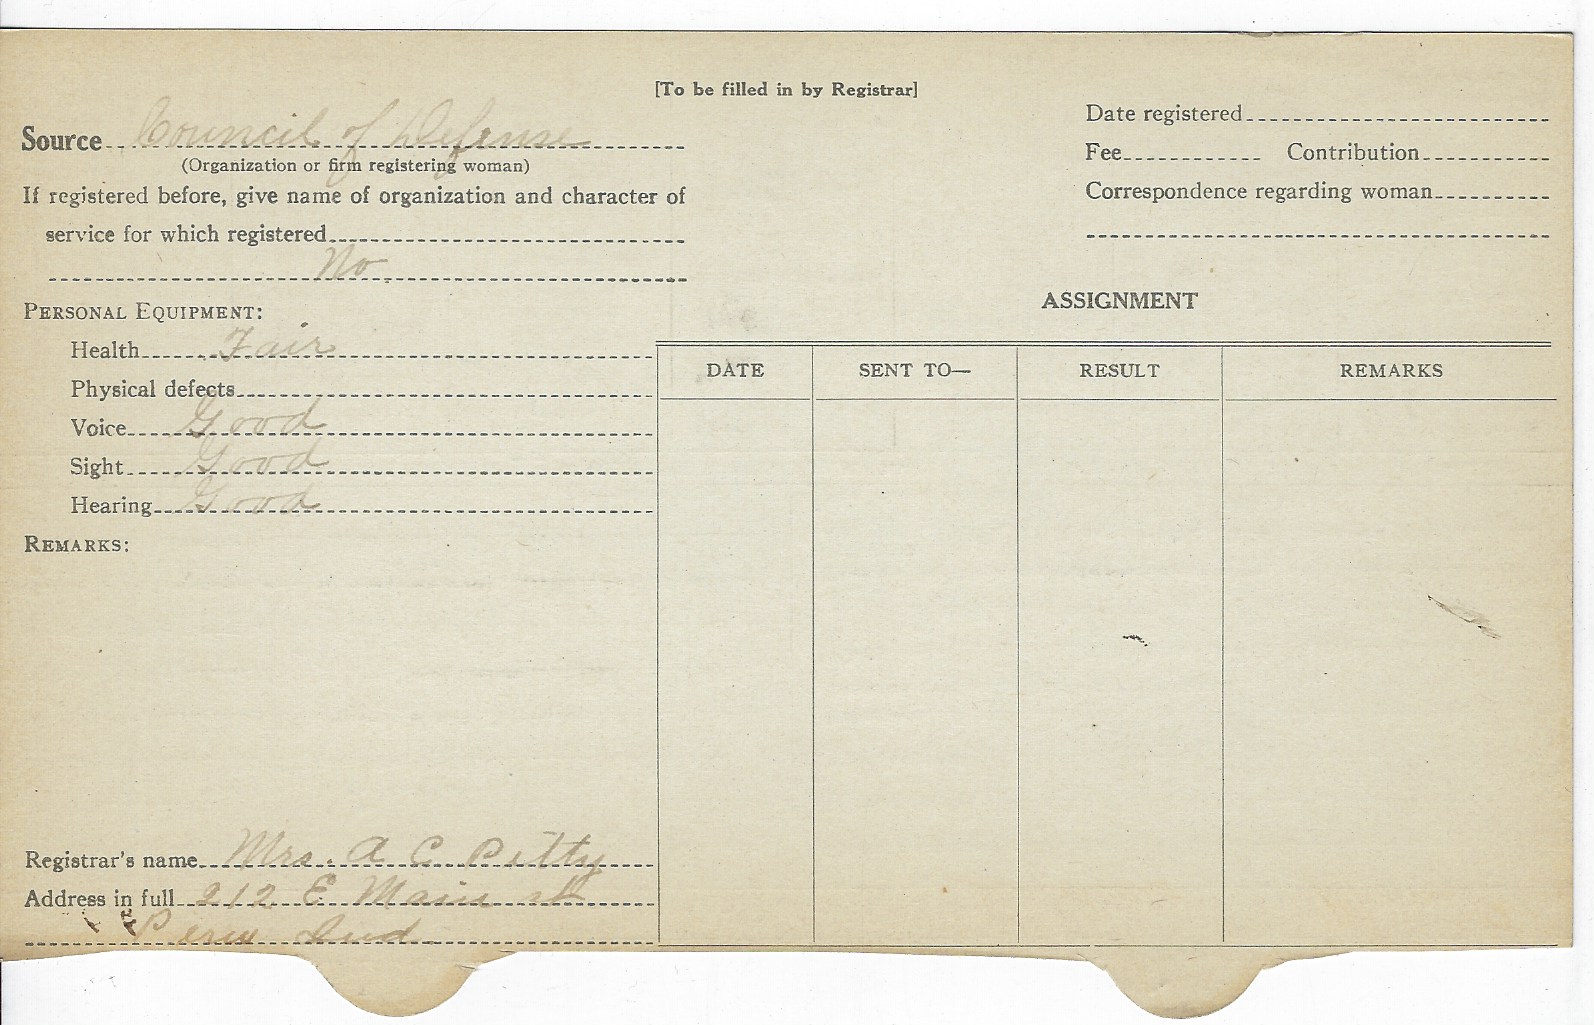 [To be filled in by Registrar]
Source Council of Defense
(Organization or firm registering woman)
If registered before, give name of organization and character of
service for which registered
No
PERSONAL EQUIPMENT:
Health Fair
Physical defects
Voice Good
Sight Good
Hearing Good
REMARKS:
Registrar's name Mrs. A C Petty
Address in full 212 E Main st
Peru Ind.
Date registered
Fee Contribution
Correspondence regarding woman
ASSIGNMENT
DATE SENT TO— RESULT REMARKS